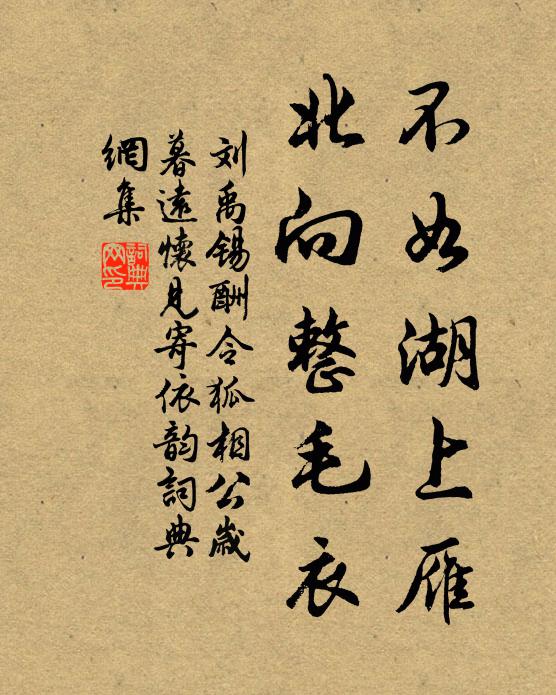 不如湖上雁
北向整毛衣
刘禹锡酬令狐相公岁
暮遠懷見寄依韵詞典
網集
詞典
网印